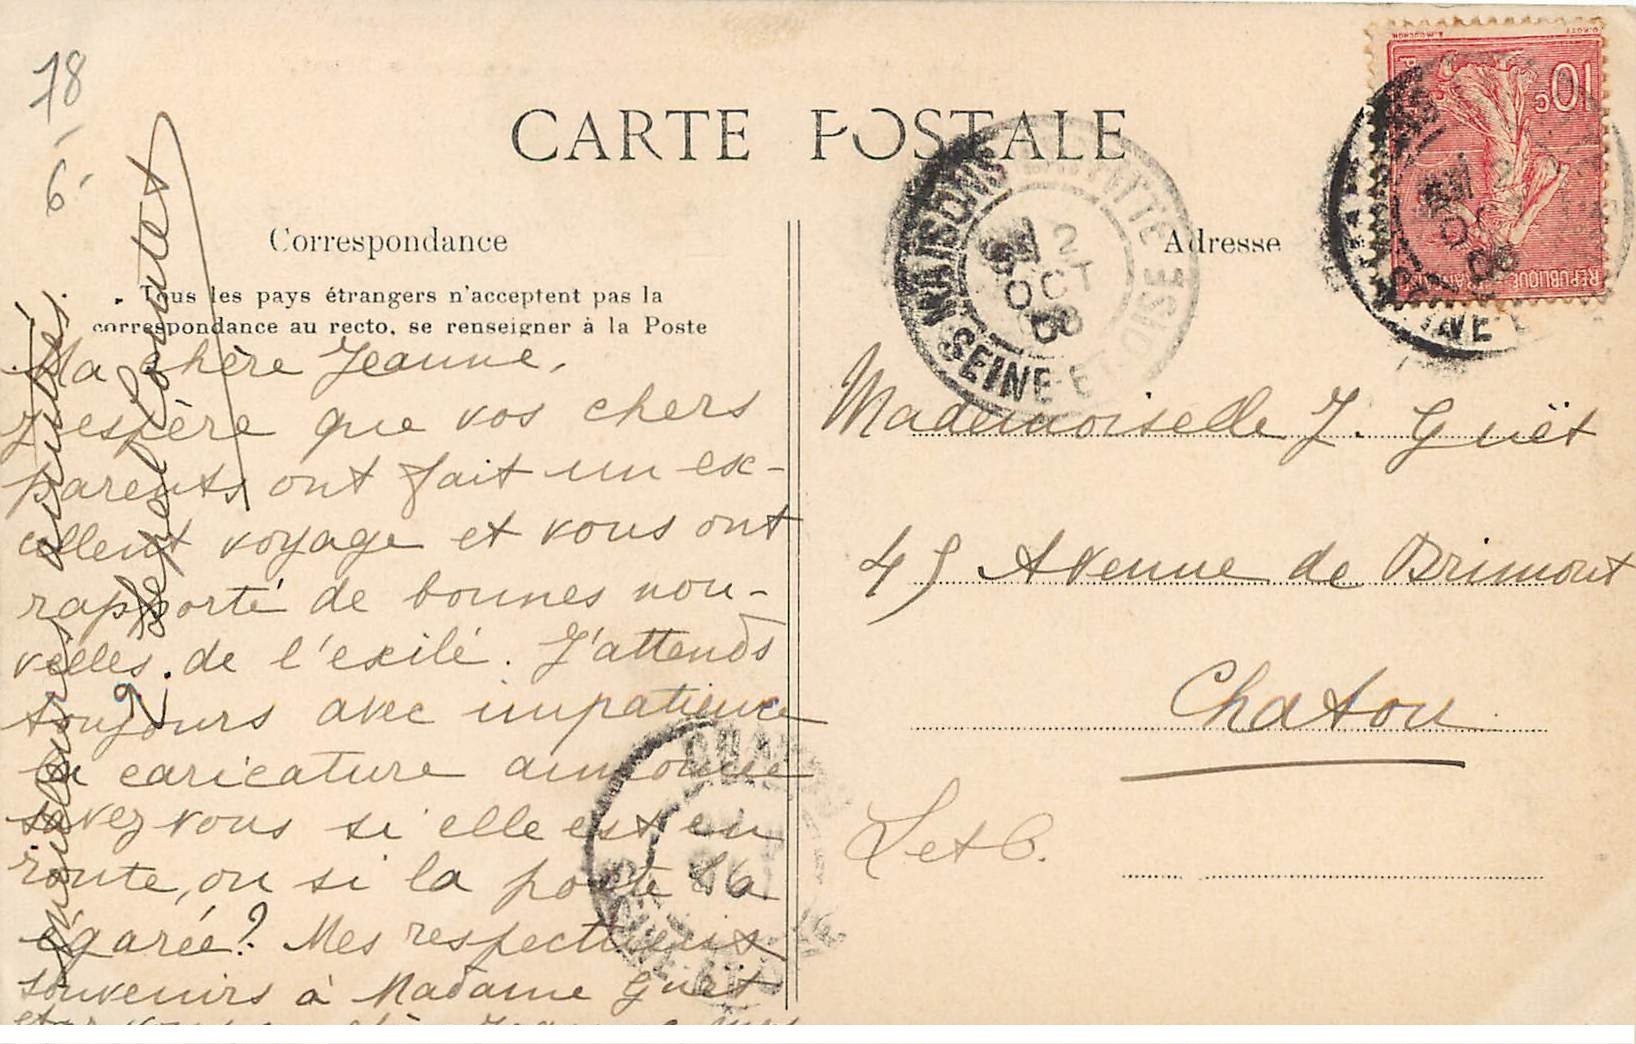 78
6,-
CARTE POSTALE
Correspondance
Tous les pays étrangers n'acceptent pas la
correspondance au recto, se renseigner à la Poste
Ma chère Jeanne,
J'espère que vos chers
parents ont fait un ex-
cellent voyage et vous ont
rapporté de bonnes nou-
velles de l'exilé. J'attends
toujours avec impatience
la caricature annoncée
savez vous si elle est en
route, ou si la poste l'a
égarée? Mes respectueux
souvenirs à Madame Guët
meilleures amitiés.
Adresse
MAISONS-LAFFITTE
2
OCT
06
SEINE-ET-OISE
10c
REPUBLIQUE FRANÇAISE
Mademoiselle J. Guët
45 Avenue de Brimont
Chatou
S et O.